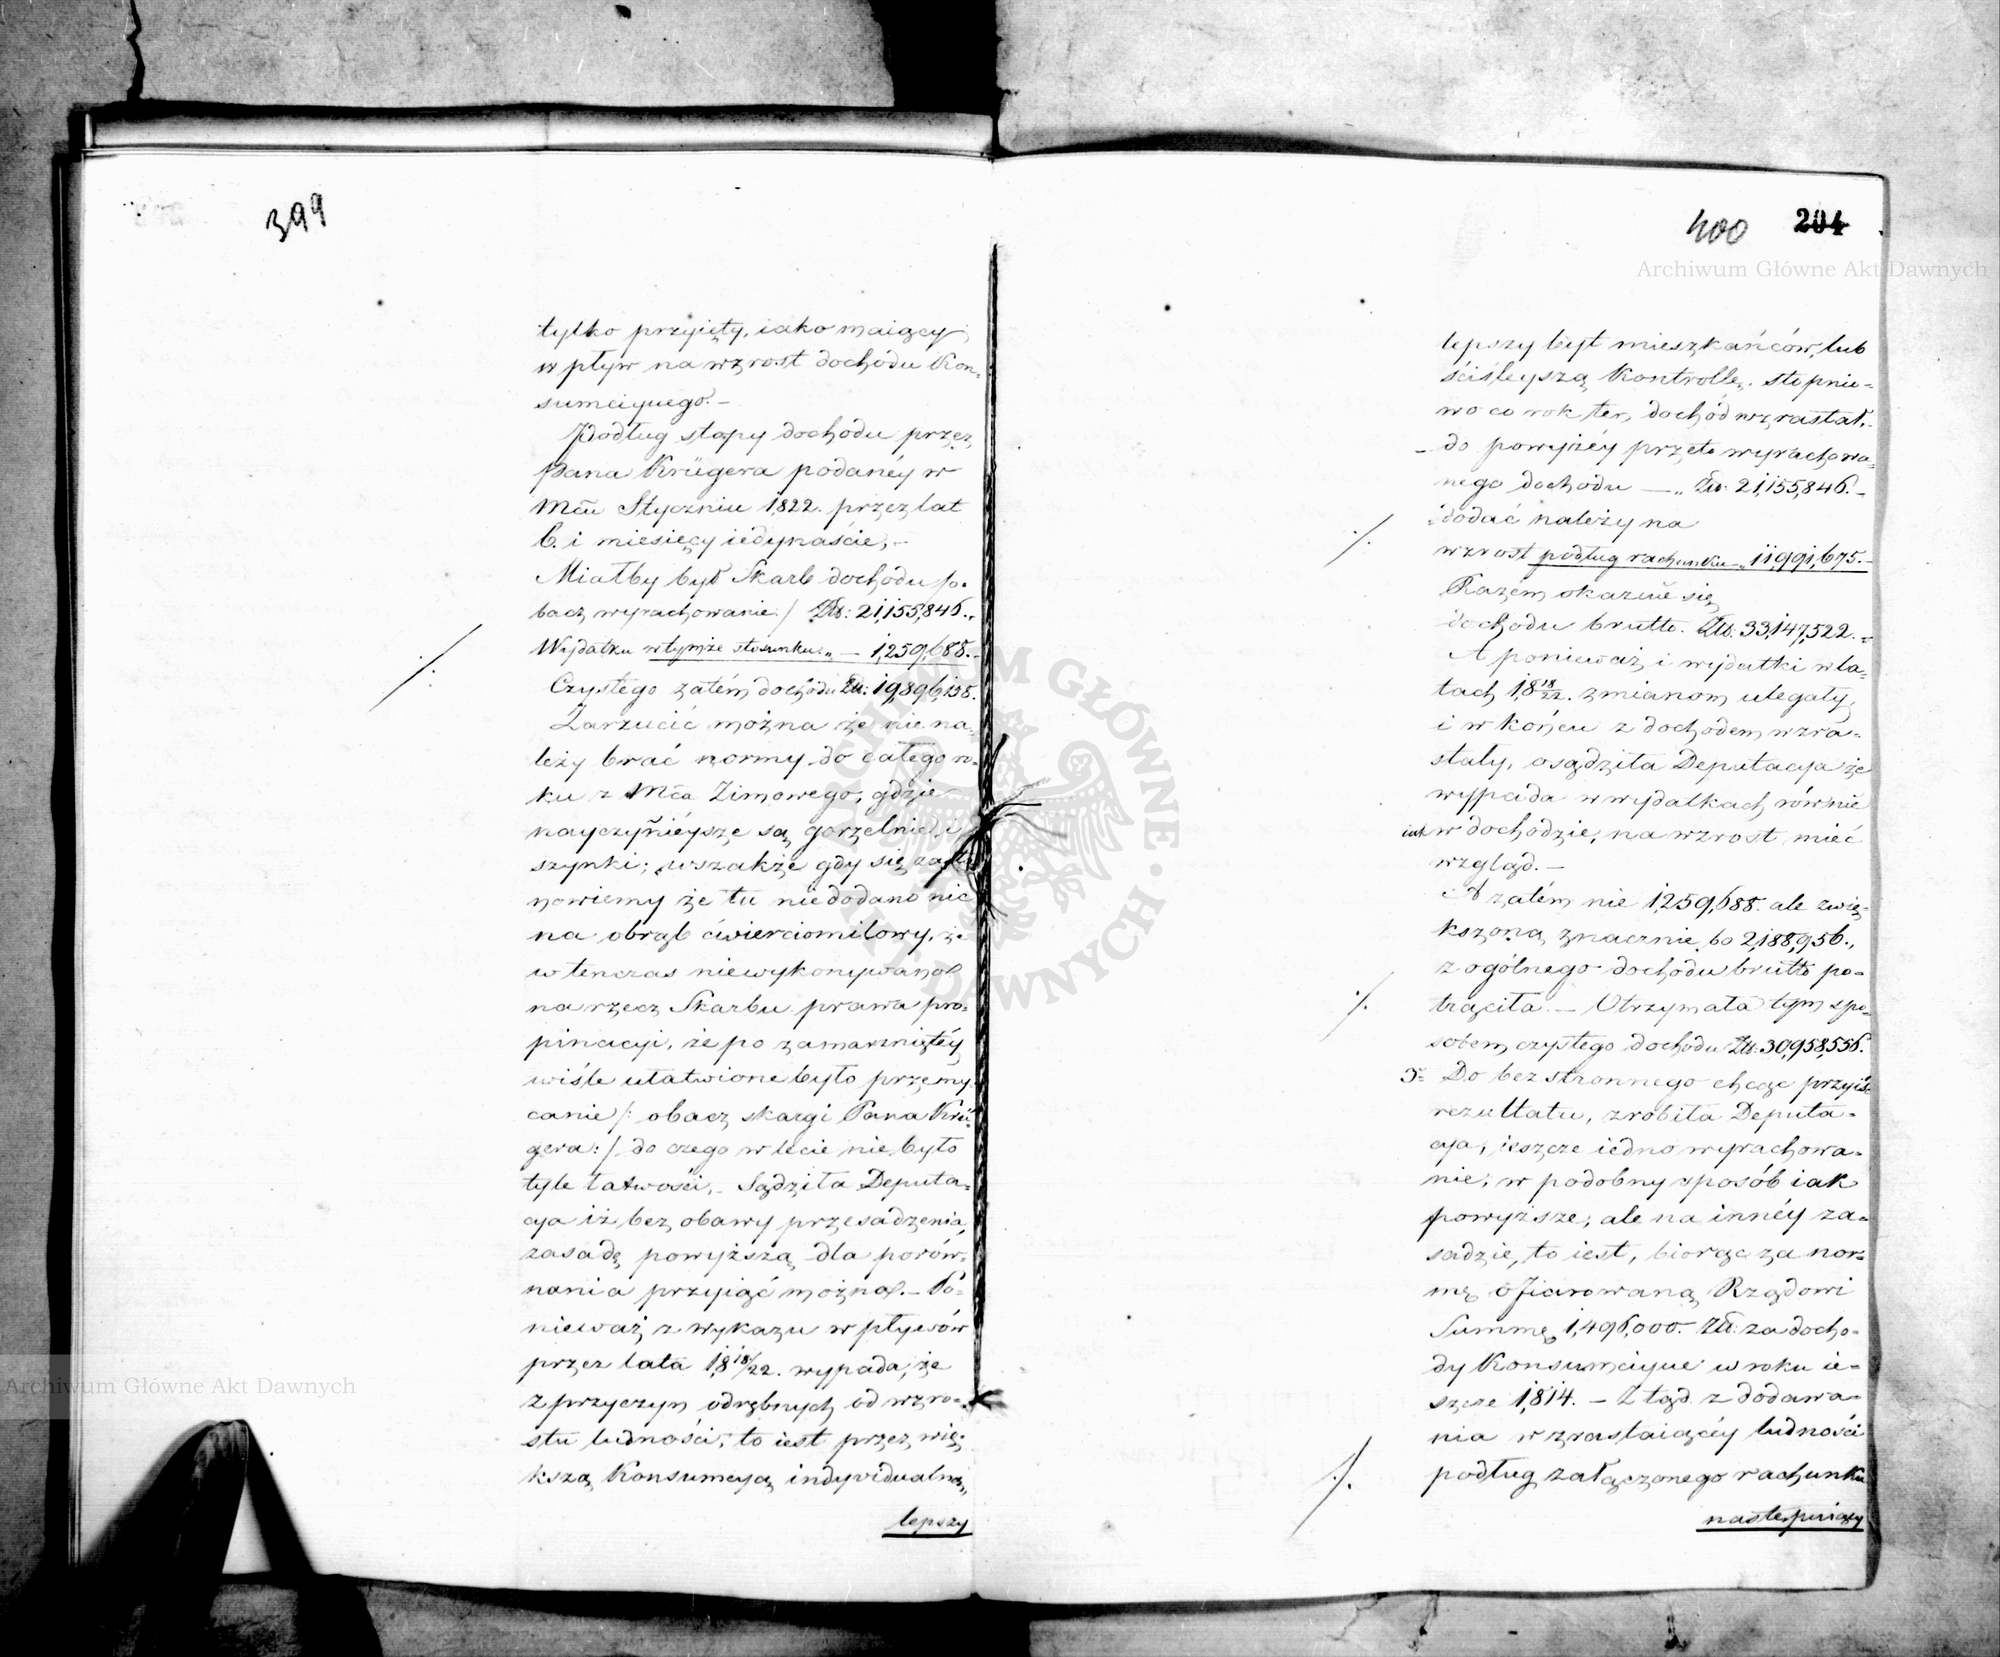 399
tylko przyięty, iako maiący
wpływ na wzrost dochodu Kon-
sumcyinego.-
Podług stopy dochodu przez
Pana Krügera podanéy w
Mcu Styczniu 1822. przez lat
6. i miesięcy iedynaście,-
Miałby był Skarb dochodu /:o-
bacz wyrachowanie:/ Złł: 21,155,846.,,
Wydatku w tymże stosunku ,, - 1,259,688.-
Czystego zatém dochodu Złł: 19,896,158.
Zarzucić można że nie na-
leży brać normy do całego ro-
ku z Mca Zimowego, gdzie
nayczynnieysze są gorzelnie i
szynki; wszakże gdy się zasta
nowiemy że tu niedodano nic
na obrąb ćwierciomilowy, że
w tenczas niewykonywano
na rzecz Skarbu prawa pro-
pinacyi, że po zamarzniętéy
wiśle ułatwione było przemy
canie /: obacz skargi Pana Krü-
gera:/ do czego w lecie nie było
tyle łatwości,- Sądziła Deputa-
cya iż bez obawy przesadzenia,
zasadę powyższą dla porów-
nania przyiąć można.- Po-
nieważ z wykazu wpływów
przez lata 18 18/22. wypada, że
z przyczyn odrębnych od wzro-
stu ludności, to iest przez wię-
kszą Konsumcyą indywidualną,
lepszy
400 204
Archiwum Główne Akt Dawnych
lepszy byt mieszkańców, lub
ściśleyszą Kontrollę, stopnio-
wo co rok ten dochód wzrastał,-
- do powyżéy przeto wyrachowa-
nego dochodu - ,, Złł. 21,155,846.-
dodać należy na
wzrost podług rachunku - ,, 11,991,675.-
Razem okazuie się
dochodu brutto. Złł. 33,147,522.-
A ponieważ i wydatki w la-
tach 18 18/22. zmianom uległy,
i w końcu z dochodem wzra-
stały, osądziła Deputacya że
wypada w wydatkach równie
iak w dochodzie, na wzrost mieć
wzgląd.-
A zatém nie 1,259,688. ale zwię-
kszoną znacznie, bo 2,188,956.,
z ogólnego dochodu brutto po-
trąciła.- Otrzymała tym spo-
sobem czystego dochodu Złł. 30,958,556.
Do bezstronnego chcąc przyiść
rezultatu, zrobiła Deputa-
cya, ieszcze iedno wyrachowa-
nie, w podobny sposób iak
powyższe; ale na innéy za-
sadzie, to iest, biorąc za nor-
mę ofiarowaną Rządowi
Summę 1,496,000. Złł: za docho-
dy Konsumcyine w roku ie-
szcze 1814. - Ztąd z dodawa-
nia wzrastaiącéy ludności
podług załączonego rachunku
następuiący
Archiwum Główne Akt Dawnych
ARCHIWUM GŁÓWNE AKT DAWNYCH